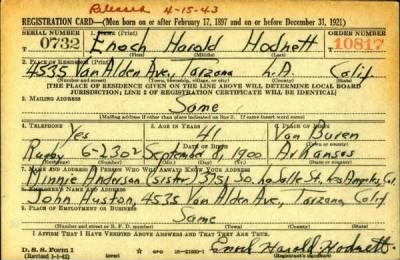 Released 4-15-43
REGISTRATION CARD—(Men born on or after February 17, 1897 and on or before December 31, 1921)
SERIAL NUMBER 1. NAME (Print) ORDER NUMBER
T 0732 Enoch Harold Hodnett 10817
(First) (Middle) (Last)
2. PLACE OF RESIDENCE (Print)
4535 Van Alden Ave, Tarzana L.A. Calif
(Number and street) (Town, township, village, or city) (County) (State)
[THE PLACE OF RESIDENCE GIVEN ON THE LINE ABOVE WILL DETERMINE LOCAL BOARD
JURISDICTION; LINE 2 OF REGISTRATION CERTIFICATE WILL BE IDENTICAL]
3. MAILING ADDRESS
Same
[Mailing address if other than place indicated on line 2. If same insert word same]
4. TELEPHONE 5. AGE IN YEARS 6. PLACE OF BIRTH
Yes 41 Van Buren
DATE OF BIRTH
6-2302 September 6, 1900 Arkansas
7. NAME AND ADDRESS OF PERSON WHO WILL ALWAYS KNOW YOUR ADDRESS
Minnie Anderson (sister) 5151 So. La Salle St. Los Angeles, Cal.
8. EMPLOYER'S NAME AND ADDRESS
John Huston, 4535 Van Alden Ave., Tarzana, Calif
9. PLACE OF EMPLOYMENT OR BUSINESS
Same
(Number and street or R. F. D. number) (Town) (County) (State)
I AFFIRM THAT I HAVE VERIFIED ABOVE ANSWERS AND THAT THEY ARE TRUE.
D. S. S. Form 1
(Revised 1-1-42) (over) Enoch Harold Hodnett
(Registrant's signature)